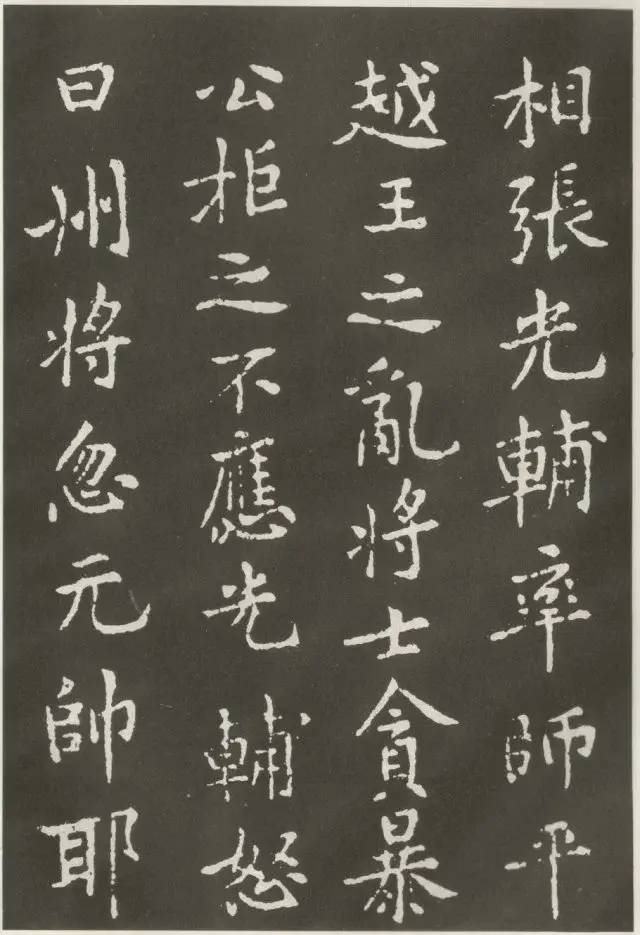 相張光輔率師平
越王之亂將士貪暴
公拒之不應光輔怒
曰州將忽元帥耶